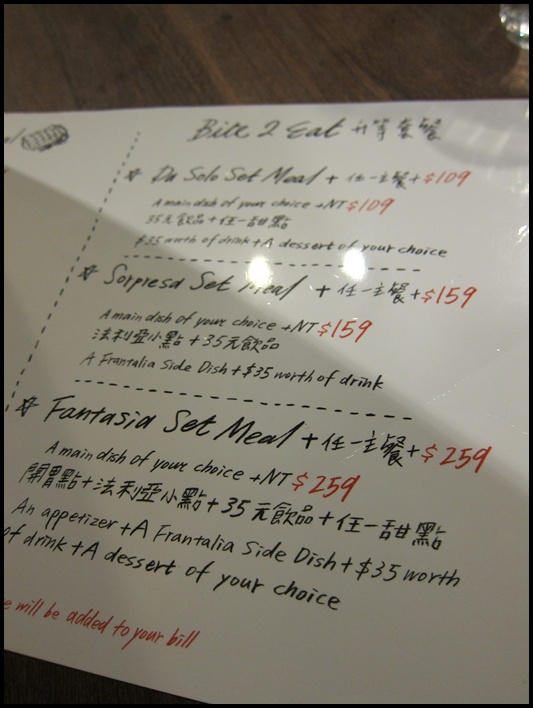 Bite 2 Eat 升等套餐
☆ Da Solo Set Meal + 任一主餐+$109
A main dish of your choice +NT$109
35元飲品+任一甜點
$35 worth of drink+A dessert of your choice
☆ Sorpresa Set Meal + 任一主餐+$159
A main dish of your choice +NT$159
法利亞小點+35元飲品
A Frantalia Side Dish+$35 worth of drink
☆ Fantasia Set Meal + 任一主餐+$259
A main dish of your choice +NT$259
開胃點+法利亞小點+35元飲品+任一甜點
An appetizer +A Frantalia Side Dish+$35 worth
of drink +A dessert of your choice
will be added to your bill